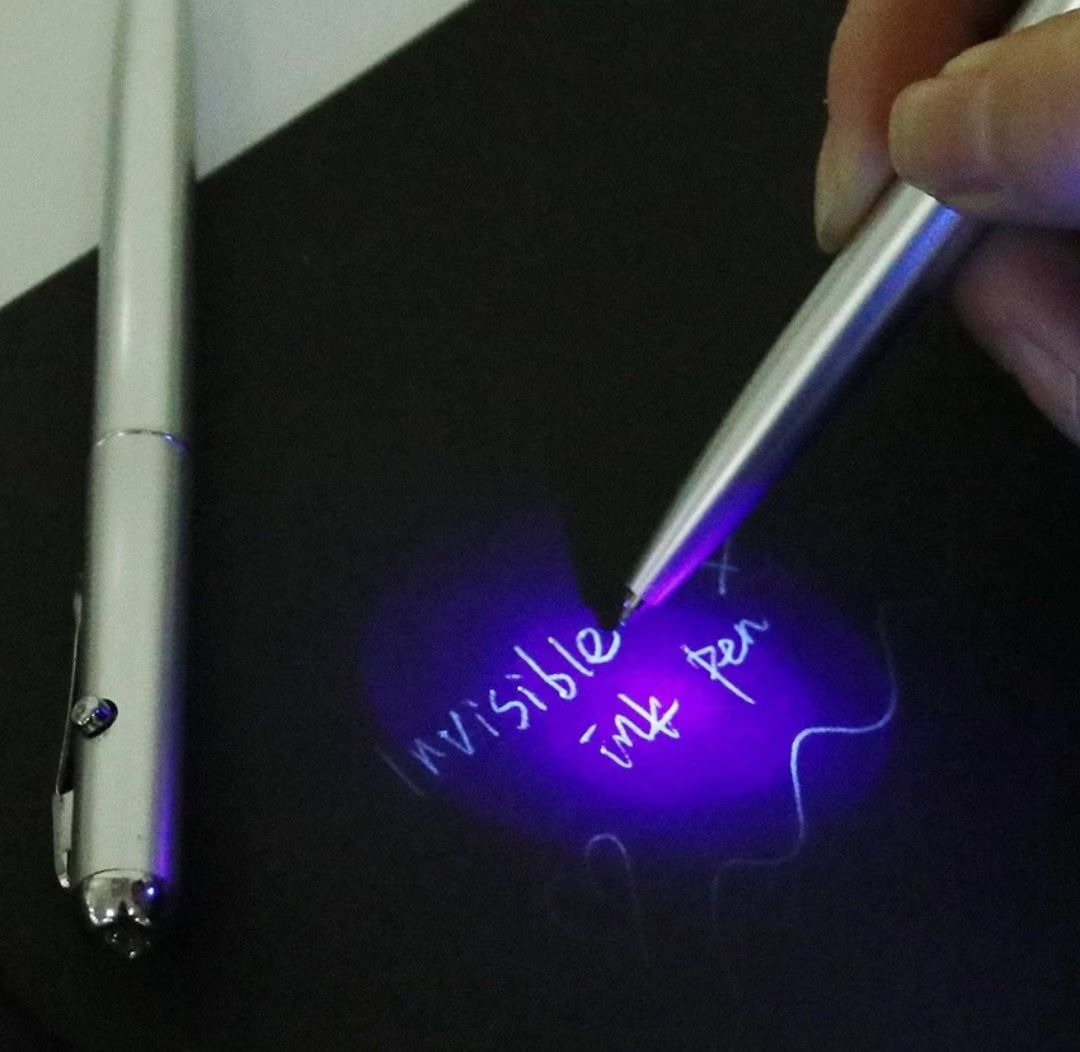 Invisible
ink pen